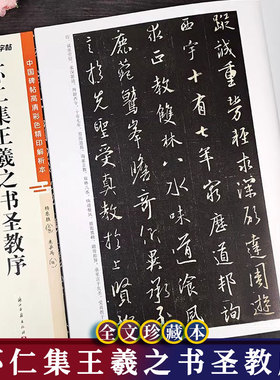 字帖
中国碑帖高清彩色精印解析本
仁集王羲之书圣教序
蹤誠重勞輕求深願達周遊
西宇十有七年窮歷道邦詢
求正教雙林八水味道飡風
鹿菀鷲峯瞻奇仰異承至
言於先聖受真教於上賢
全文珍藏本
怀仁集王羲之书圣教